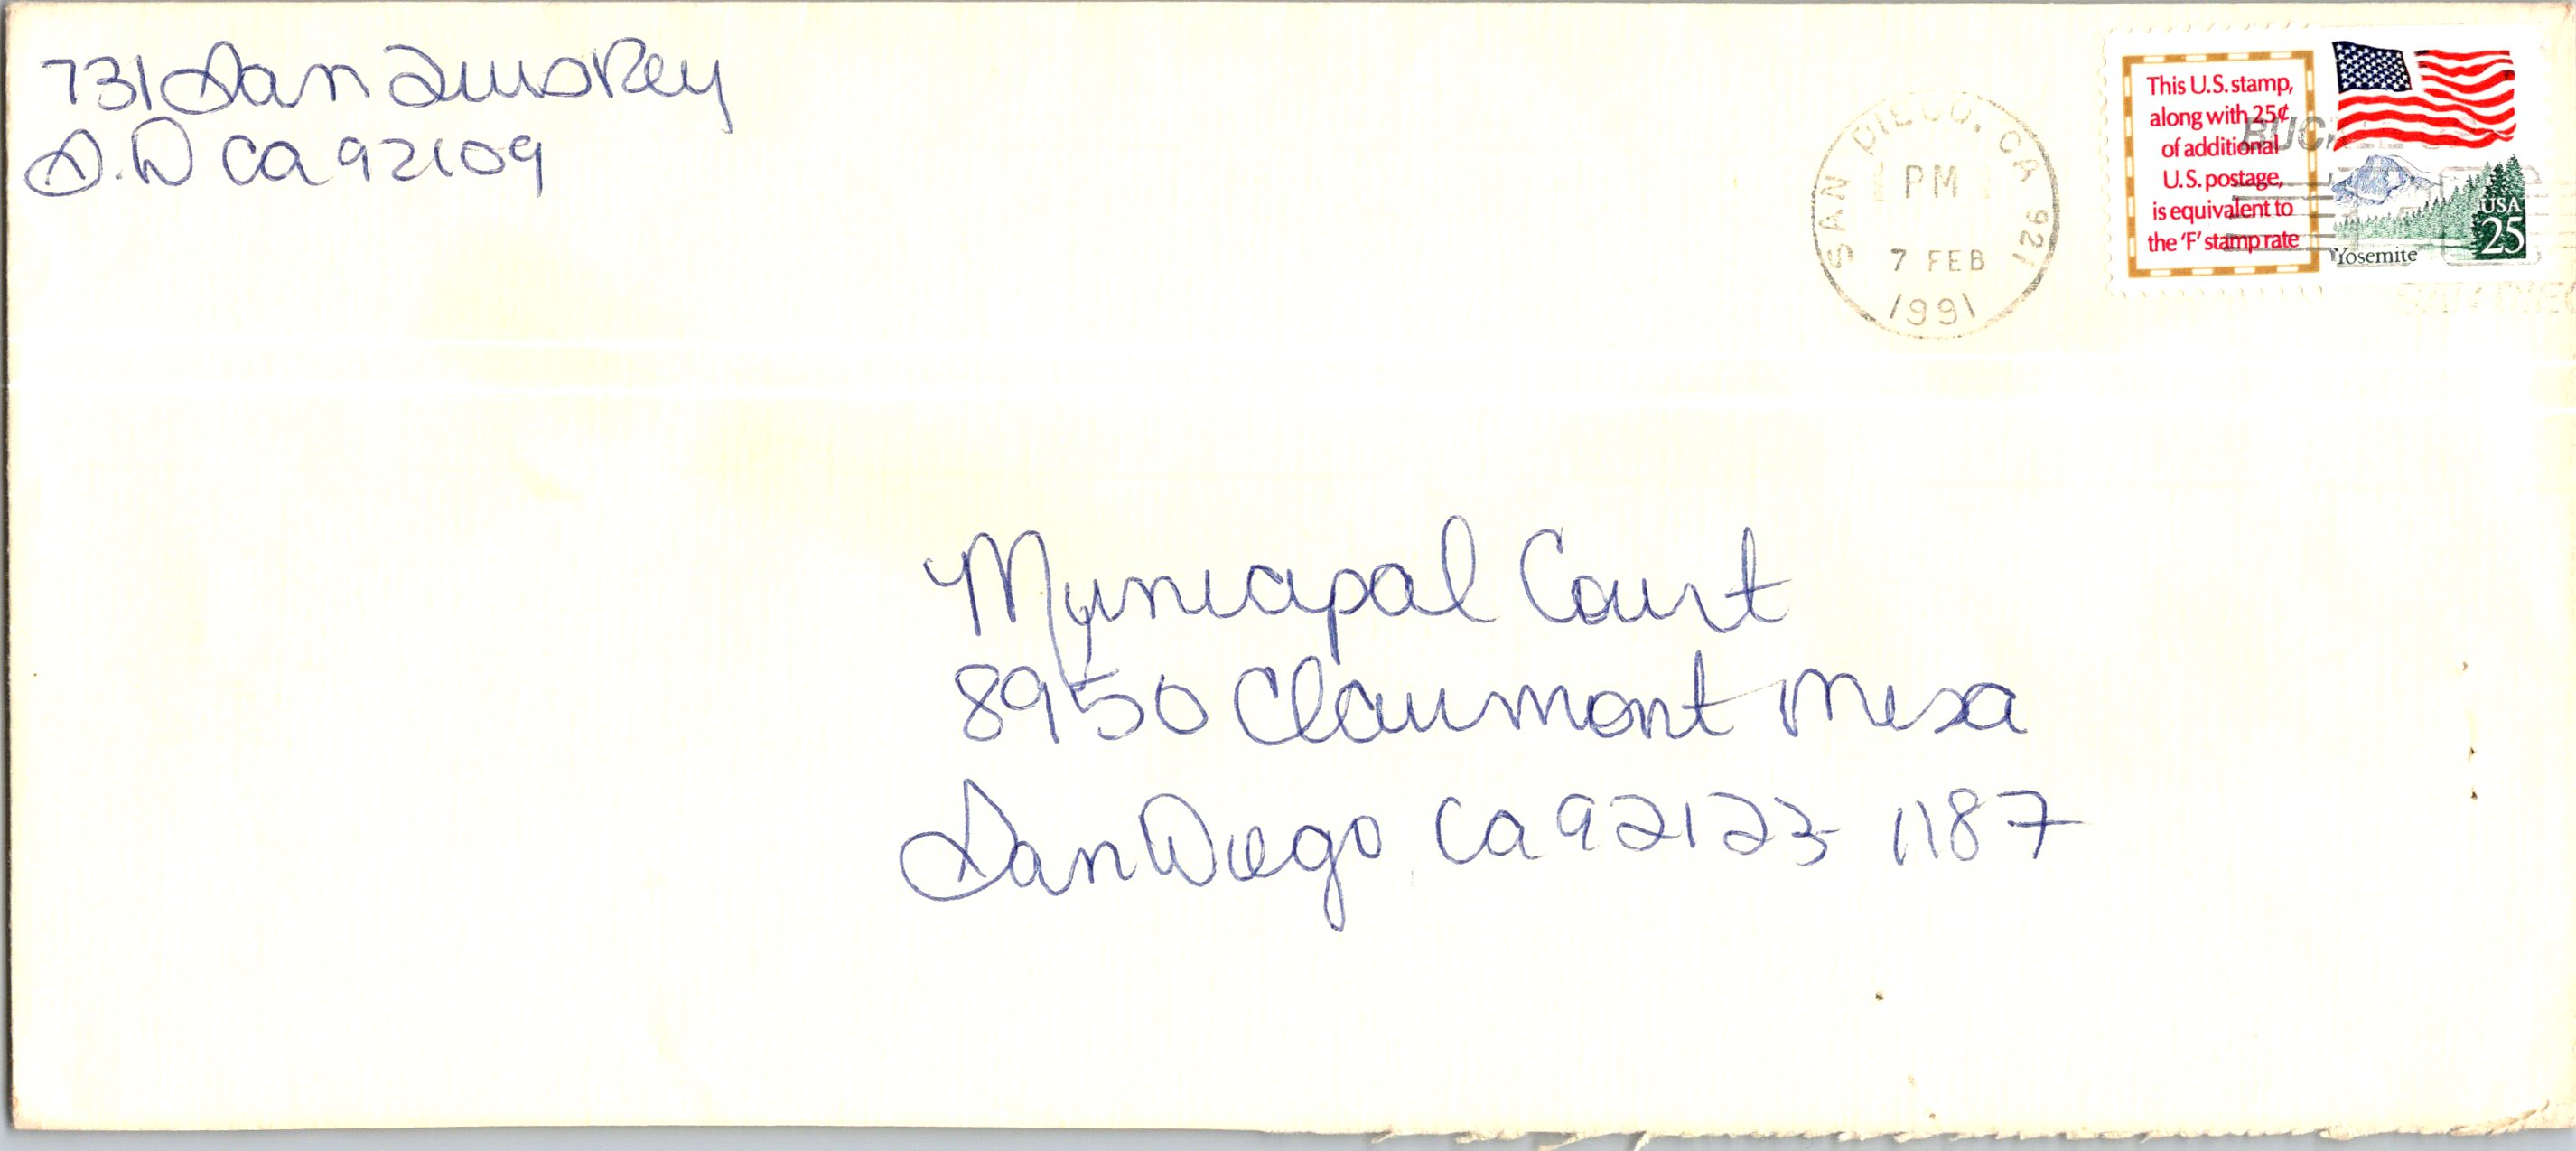 731 San Luis Rey
S.D Ca 92109
SAN DIEGO, CA 921
PM
7 FEB
1991
This U.S. stamp,
along with 25¢
of additional
U.S. postage,
is equivalent to
the 'F' stamp rate
USA
25
Yosemite
SAN DIEGO
Municipal Court
8950 Clairmont Mesa
San Diego Ca 92123-1187